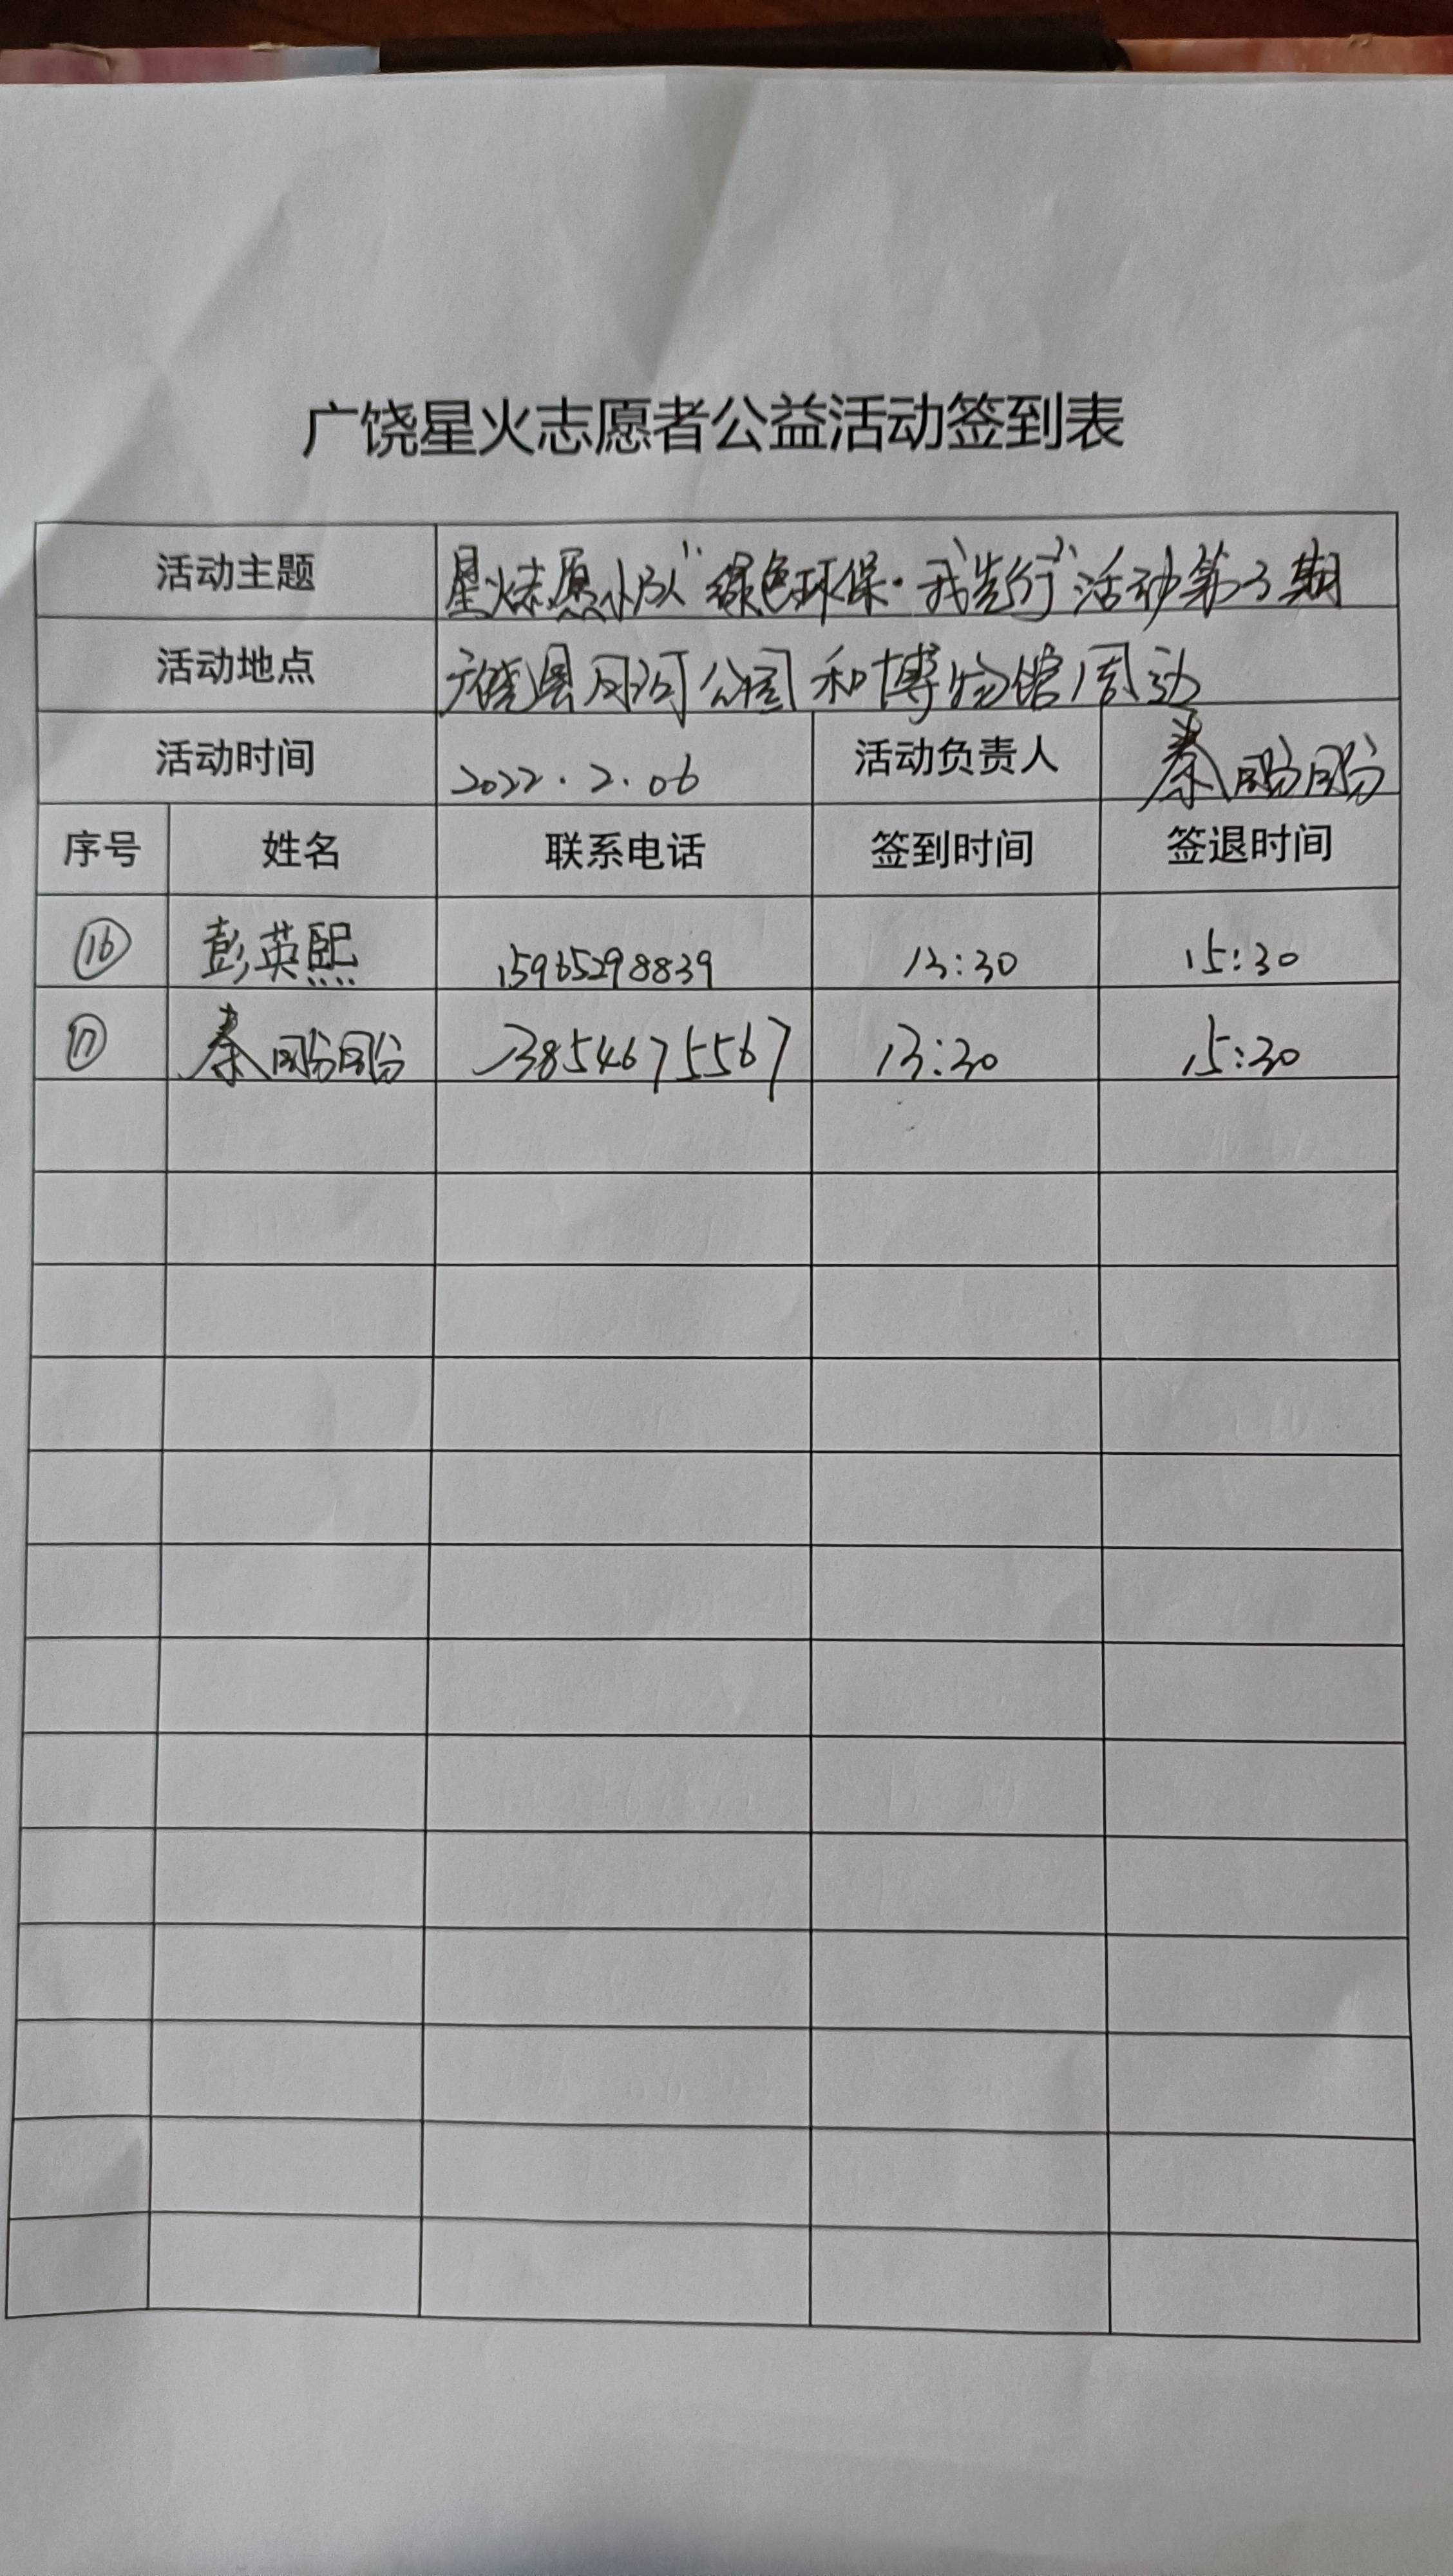 广饶星火志愿者公益活动签到表
活动主题 星火志愿小队“绿色环保·我先行”活动第3期
活动地点 广饶县月河公园和博物馆周边
活动时间 2022.2.06 活动负责人 秦盼盼
序号 姓名 联系电话 签到时间 签退时间
⑯ 彭英熙 15965298839 13:30 15:30
⑰ 秦盼盼 13854675567 13:30 15:30